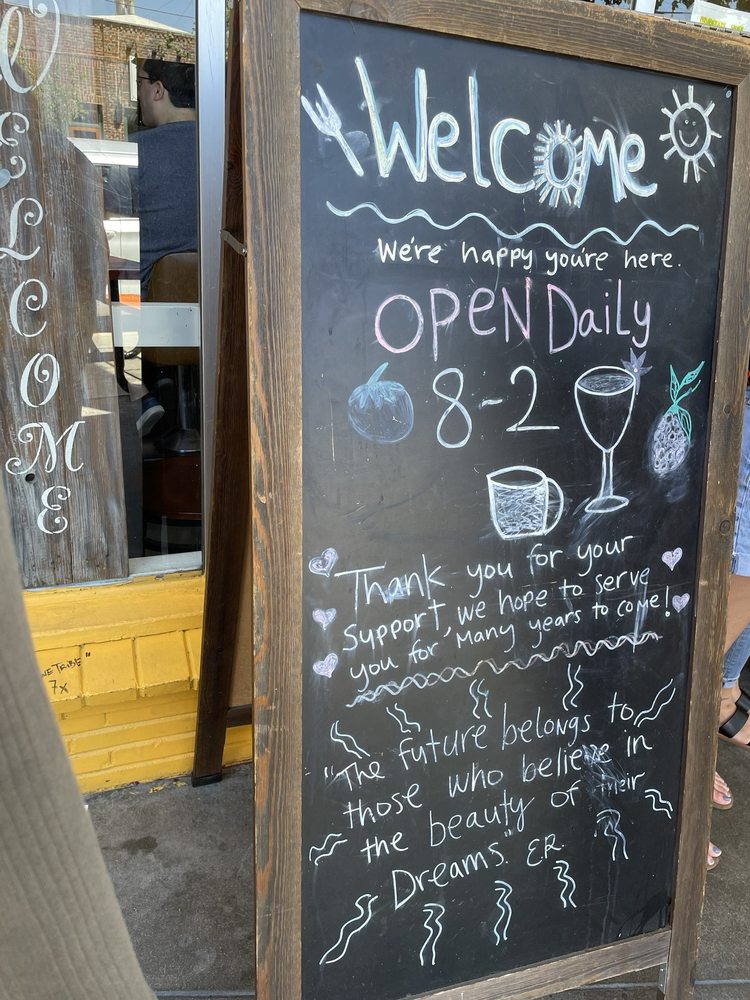 WELCOME
NE TRIBE"
7x
Welcome
We're happy you're here.
OPEN Daily
8-2
Thank you for your
support, we hope to serve
you for many years to come!
"The future belongs to
those who believe in
the beauty of their
Dreams." E.R.